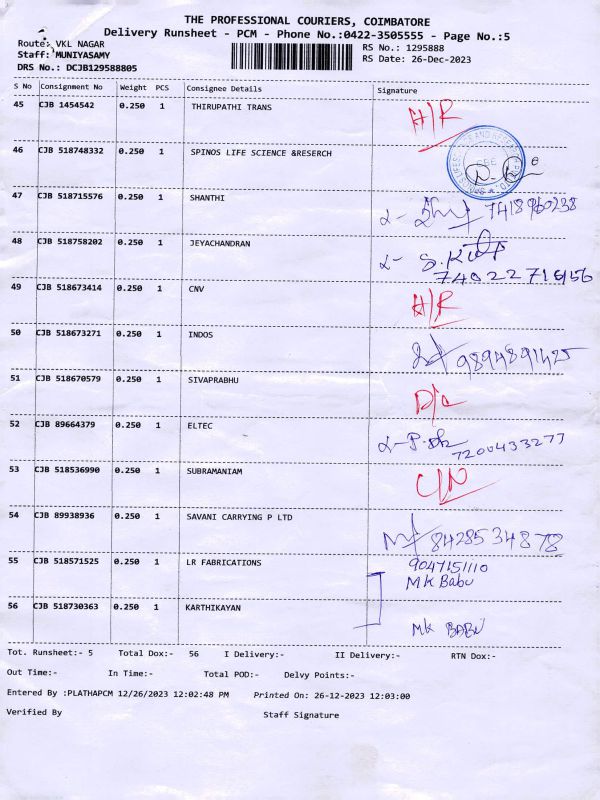 THE PROFESSIONAL COURIERS, COIMBATORE
Delivery Runsheet - PCM - Phone No.:0422-3505555 - Page No.:5
Route: VKL NAGAR
Staff: MUNIYASAMY
DRS No.: DCJB129588805
RS No.: 1295888
RS Date: 26-Dec-2023
S No Consignment No Weight PCS Consignee Details Signature
45 CJB 1454542 0.250 1 THIRUPATHI TRANS H/R
46 CJB 518748332 0.250 1 SPINOS LIFE SCIENCE &RESERCH
47 CJB 518715576 0.250 1 SHANTHI 7418960238
48 CJB 518758202 0.250 1 JEYACHANDRAN
49 CJB 518673414 0.250 1 CNV H/R
50 CJB 518673271 0.250 1 INDOS
51 CJB 518670579 0.250 1 SIVAPRABHU D/C
52 CJB 89664379 0.250 1 ELTEC 7200433277
53 CJB 518536990 0.250 1 SUBRAMANIAM C/N
54 CJB 89938936 0.250 1 SAVANI CARRYING P LTD 8428534878
55 CJB 518571525 0.250 1 LR FABRICATIONS 9047151110
MK Babu
56 CJB 518730363 0.250 1 KARTHIKAYAN
MK BABU
Tot. Runsheet:- 5 Total Dox:- 56 I Delivery:- II Delivery:- RTN Dox:-
Out Time:- In Time:- Total POD:- Delvy Points:-
Entered By :PLATHAPCM 12/26/2023 12:02:48 PM Printed On: 26-12-2023 12:03:00
Verified By Staff Signature